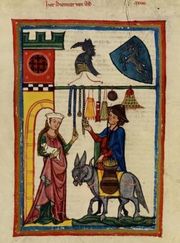 Her Dietmar von Ast